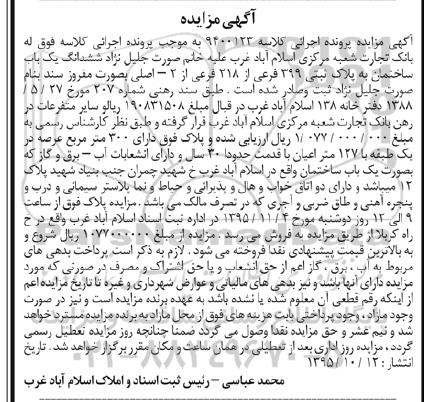 آگهی مزایده
آگهی مزایده پرونده اجرائی کلاسه ۹۴۰۰۱۲۳ به موجب پرونده اجرائی کلاسه فوق له
بانک تجارت شعبه مرکزی اسلام آباد غرب علیه خانم صورت جلیل نژاد ششدانگ یک باب
ساختمان به پلاک ثبتی ۳۹۹ فرعی از ۲۱۸ فرعی از ۲ – اصلی بصورت مفروز سند بنام
صورت جلیل نژاد ثبت وصادر شده است . طبق سند رهنی شماره ۲۰۷ مورخ ۲۷ / ۵ /
۱۳۸۸ دفتر خانه ۱۳۸ اسلام آباد غرب در قبال مبلغ ۱۹۰۸۳۱۵۰۸ ریالو سایر متفرعات در
رهن بانک تجارت شعبه مرکزی اسلام آباد غرب قرار گرفته و طبق نظر کارشناس رسمی به
مبلغ ۰۰۰ / ۰۰۰ / ۰۷۷ / ۱ ریال ارزیابی شده و پلاک فوق دارای ۳۰۰ متر مربع عرصه در
یک طبقه با ۱۲۷ متر اعیان با قدمت حدودا ۳۰ سال و دارای انشعابات آب – برق و گاز که
بصورت یک باب ساختمان واقع در اسلام آباد غرب خ شهید چمران جنب بنیاد شهید پلاک
۱۲ میباشد و دارای دو اتاق خواب و هال و پذیرائی و حیاط و نما پلاستر سیمانی و درب و
پنجره آهنی و طاق ضربی و آجری که در تصرف مالک می باشد . مزایده پلاک فوق از ساعت
۹ الی ۱۲ روز دوشنبه مورخ ۴ / ۱۱ / ۱۳۹۵ در اداره ثبت اسناد اسلام آباد غرب واقع در خ
راه کربلا از طریق مزایده به فروش می رسد . مزایده از مبلغ ۱۰۷۷۰۰۰۰۰۰ ریال شروع و
به بالاترین قیمت پیشنهادی نقدا فروخته می شود . لازم به ذکر است پرداخت بدهی های
مربوط به آب ، برق ، گاز اعم از حق انشعاب و یا حق اشتراک و مصرف در صورتی که مورد
مزایده دارای آنها باشد و نیز بدهی های مالیاتی و عوارض شهرداری و غیره تا تاریخ مزایده اعم
از اینکه رقم قطعی آن معلوم شده یا نشده باشد به عهده برنده مزایده است و نیز در صورت
وجود مازاد ، وجوه پرداختی بابت هزینه های فوق از محل مازاد به برنده مزایده مسترد خواهد
شد و نیم عشر و حق مزایده نقدا وصول می گردد ضمنا چنانچه روز مزایده تعطیل رسمی
گردد ، مزایده روز اداری بعد از تعطیلی در همان ساعت و مکان مقرر برگزار خواهد شد . تاریخ
انتشار : ۱۲ / ۱۰ / ۱۳۹۵
محمد عباسی – رئیس ثبت اسناد و املاک اسلام آباد غرب